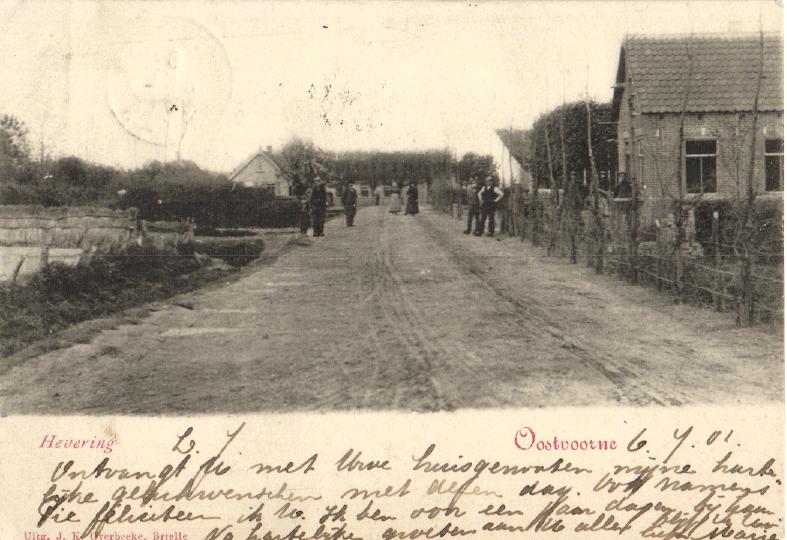 Hevering
L. J.
Oostvoorne 6 7. 01.
Ontvangt U met Uwe huisgenooten mijne harte
lijke gelukwenschen met dezen dag. Ook namens
feliciteer ik U. Ik ben voor een paar dagen bij
Uitg. J. K. Overbeeke, Brielle
Na hartelijke groeten aan U allen Marie